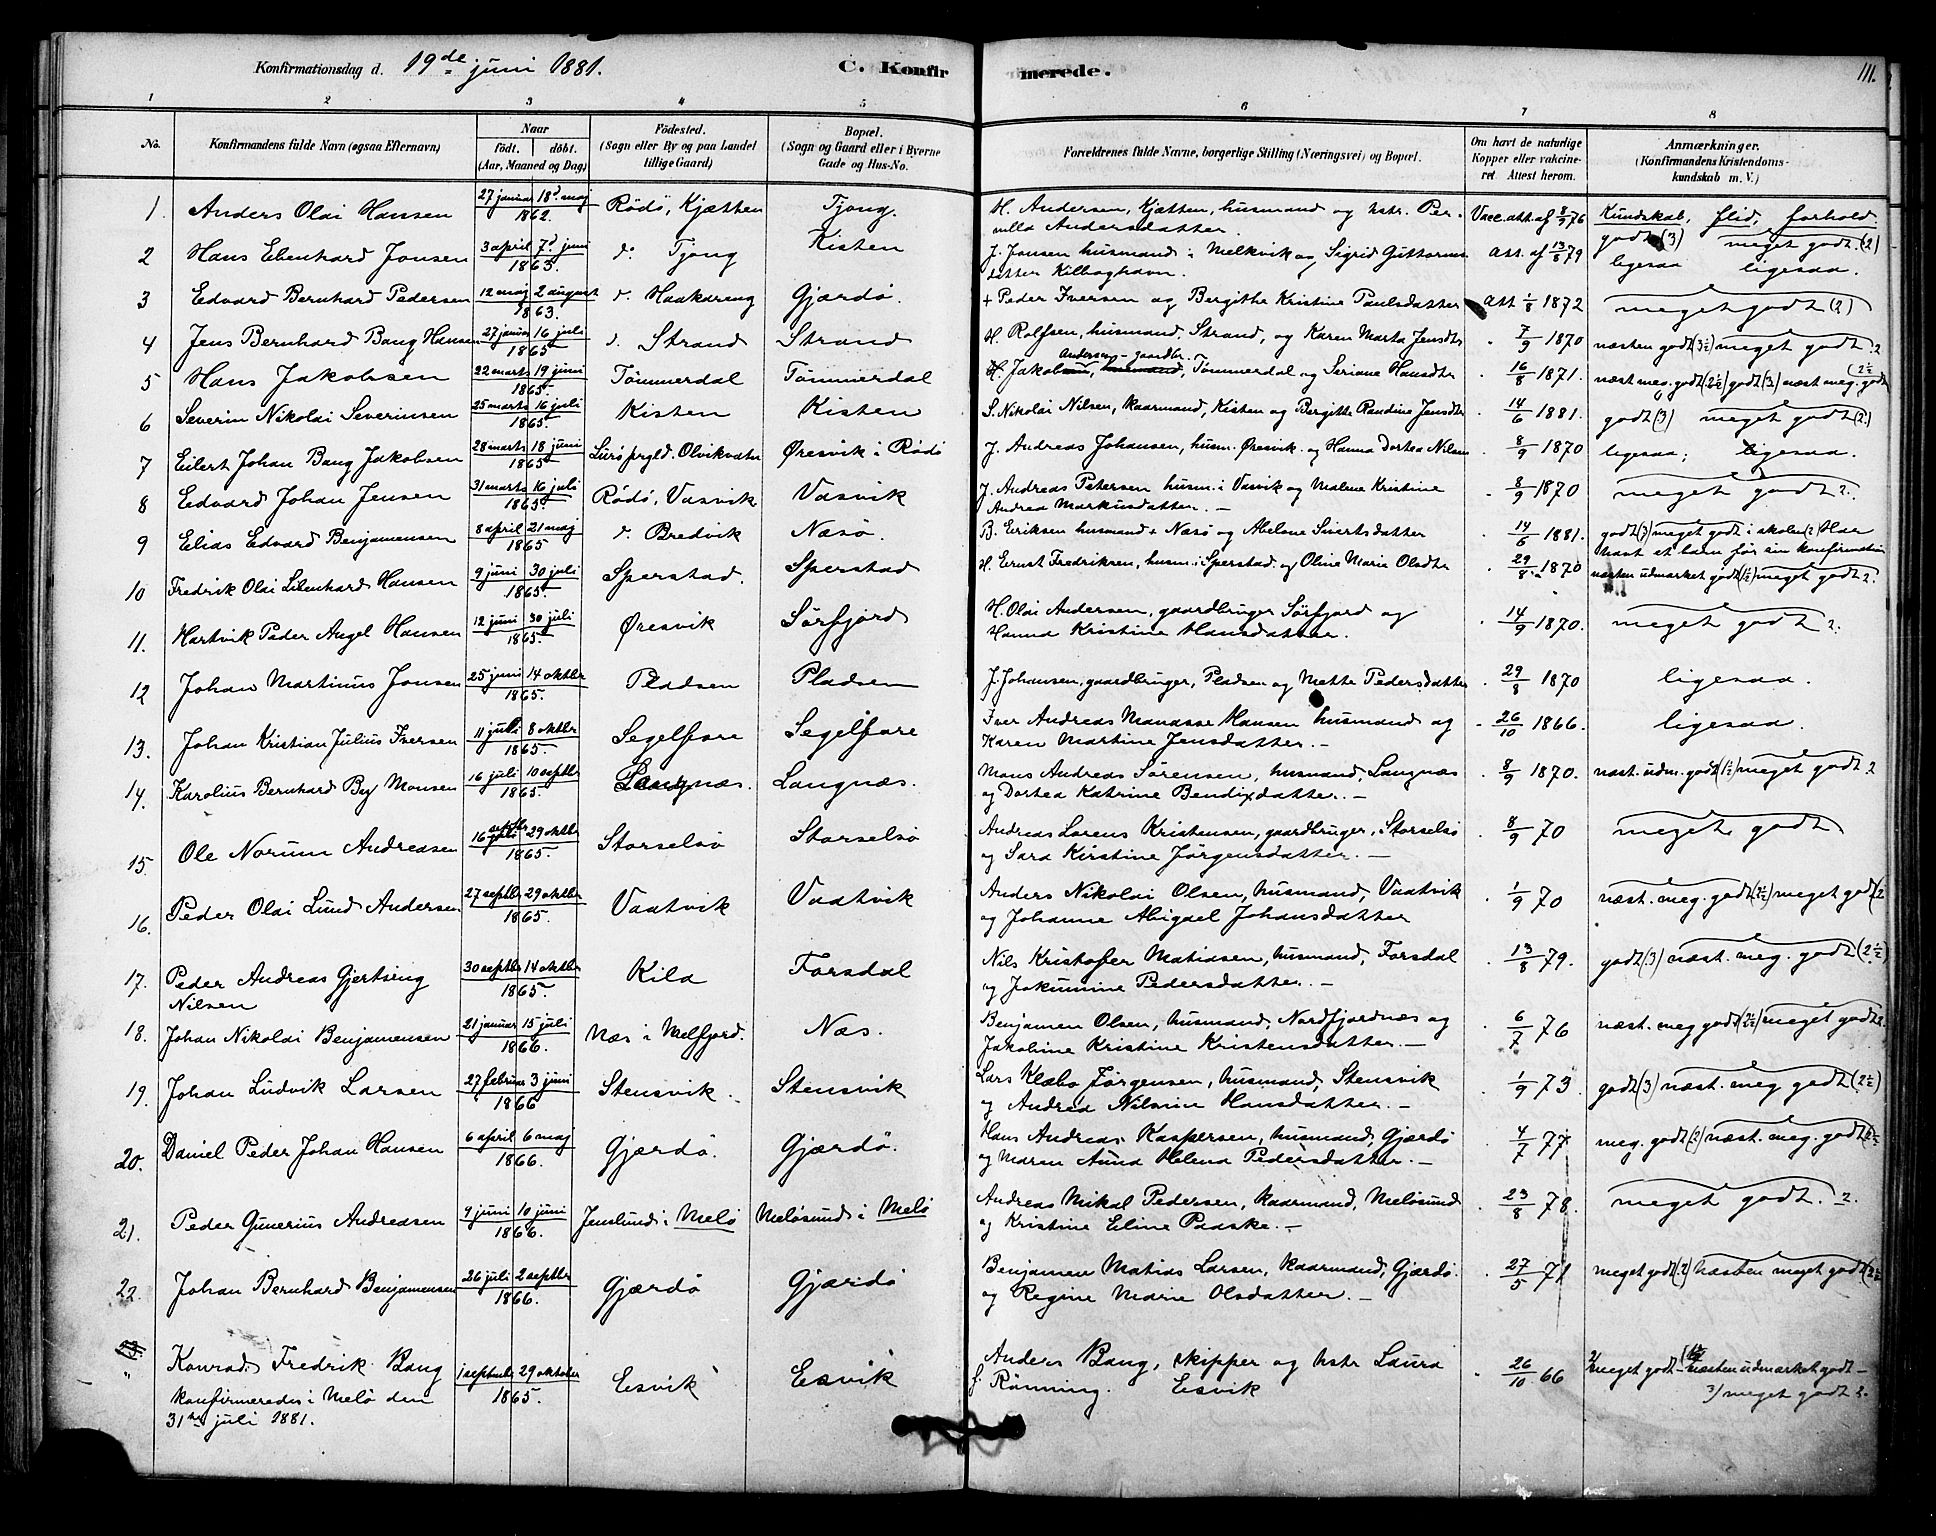 Konfirmationsdag d. 19de juni 1881. C. Konfirmerede. 111.
1 2 3 4 5 6 7 8
No. Konfirmandens fulde Navn (ogsaa Efternavn) Naar født. døbt. (Aar, Maaned og Dag) Fødested. (Sogn eller By og paa Landet tillige Gaard) Bopæl. (Sogn og Gaard eller i Byerne Gade og Hus-No. Forældrenes fulde Navne, borgerlige Stilling (Næringsvei) og Bopæl. Om havt de naturlige Kopper eller vakcineret. Attest herom. Anmærkninger. (Konfirmandens Kristendomskundskab m. V.)
1. Anders Olai Hansen 27 januar 18d maj 1862. Rödö, Kjætten Tjong. H. Andersen, Kjætten, husmand og hstr. Pernilla Andersdatter. Vacc. att. af 8/9 76 Kundskab, flid, forhold. godt (3) meget godt (2)
2 Hans Ebenhard Jonsen 3 april 7d juni 1863. d. Tjong Kisten J. Jonsen husmand i Melkvik og Sigrid Guttormsdatter Kilboghavn. att. af 13/8 79 ligesaa ligesaa.
3 Edvard Bernhard Pedersen 12 maj 2 august 1863. d. Haakareng Gjærdö. + Peder Iversen og Bergithe Kristine Paulsdatter att 1/8 1872 meget godt (2)
4 Jens Bernhard Bang Hansen 27 januar 16 juli 1865 d. Strand Strand H. Rolfsen, husmand, Strand, og Karen Marta Jensdtr " 7/9 1870 næsten godt (3½) meget godt. 2
5 Hans Jakobsen 22 marts 19 juni 1865. Tömmerdal Tömmerdal H. Jakob Andersen - gaardbr., husmand, Tömmerdal og Seriane Hansdtr " 16/8 1871. næst meg. godt (2½) godt (3) næst meg. godt (2½
6 Severin Nikolai Severinsen 25 marts 16 juli 1865. Kisten Kisten S. Nikolai Nilsen, kaarmand, Kisten og Bergitte Randine Jensdtr " 14/6 1881. godt (3) meget godt (2)
7 Eilert Johan Bang Jakobsen 28 marts 18 juni 1865 Luröprgld. Olvikvatn Øresvik i Rödö J. Andreas Johansen, husm. Øresvik og Hanna Dortea Nilsen " 8/9 1870 ligesaa; ligesaa.
8 Edvard Johan Jensen 31 marts 16 juli 1865. Rödö, Vasvik Vasvik J. Andreas Petersen husm. i Vasvik og Malene Kristine Andrea Markusdatter. — " 8/9 1870 meget godt 2.
9 Elias Edvard Benjamensen 8 april 21 maj 1865 d. Bredvik Næsö. B. Eriksen husmand + Næsö og Abelone Sivertsdatter " 14/6 1881. godt (3) meget godt i skolen (2) Har havt et barn för sin konfirmation
10 Fredrik Olai Libenhard Hansen 9 juni 30 juli 1865. Sperstad. Sperstad H. Ernst Fredriksen, husm. i Sperstad. og Oline Marie Olsdtr " 29/8 1870 næsten udmarket godt (1½) meget godt 2.
11. Hartvik Peder Angel Hansen 12 juni 30 juli 1865. Øresvik Sörfjord H. Olai Andersen, gaardbruger Sörfjord og Hanna Kristine Hansdatter. " 14/9 1870. meget godt 2.
12 Johan Martinus Jonsen 25 juni 14 oktbr 1865. Pladsen Pladsen J. Johansen, gaardbruger, Pladsen og Mette Pedersdatter " 29/8 1870 ligesaa.
13. Johan Kristian Julius Iversen 11 juli 8 oktbr 1865. Segelfore Segelfore Iver Andreas Manasse Hansen husmand og Karen Martine Jensdatter. — " 26/10 1866 ligesaa.
14. Karolius Bernhard Bey Monsen 16 juli 10 septbr 1865. Langnæs. Langnæs. Mons Andreas Sörensen, husmand, Langnæs og Dortea Katrine Bendixdatter. — " 8/9 1870. næst. udm. godt (1½) meget godt 2
15. Ole Norum Andreasen 16 septbr juli 29 oktbr 1865. Storselsö Storselsö Andreas Lorens Kristensen, gaardbruger, Storselsö og Sara Kirstine Jörgensdatter. — " 8/9 70 meget godt
16. Peder Olai Lund Andersen 27 septbr 29 oktbr 1865. Vaatvik Vaatvik Anders Nikolai Olsen, husmand, Vaatvik og Johanne Abigael Johansdatter " 1/9 70 næst. meg. godt (2½) meget godt (2
17. Peder Andreas Gjertsing Nilsen 30 septbr 14 oktbr 1865. Kila Forsdal Nils Kristofer Matiasen, husmand, Forsdal og Jakumine Pedersdatter. — " 13/8 79. godt (3) næst. meg. godt (2½
18. Johan Nikolai Benjamensen 21 januar 15 juli 1866. Næs i Melfjord. Næs. Benjamen Olsen, husmand, Nordfjordnæs og Jakobine Kristine Kristensdatter. — " 6/7 76 næst. meg godt (2½) meget godt 2.
19. Johan Ludvik Larsen 27 februar 3 juni 1866 Stensvik. Stensvik Lars Klæbo Jörgensen, husmand, Stensvik og Andrea Nilsine Hansdatter. — " 1/9 73 godt (3) næst. meg godt (2½)
20. Daniel Peder Johan Hansen 6 april 6 maj 1866. Gjærdö. Gjærdö. Hans Andreas Kaspersen, husmand, Gjærdö og Maren Anna Helena Pedersdatter. — " 4/7 77 meg. godt (2) næst. meg. godt (2½
21. Peder Gunerius Andreasen 9 juni 10 juni 1866. Jenslund i Melö Melösund i Melö Andreas Mikal Pedersen, kaarmand, Melösund og Kristine Eline Paaske. — " 23/8 78. meget godt. 2.
22. Johan Bernhard Benjamensen 26 juli 2 septbr 1866. Gjærdö Gjærdö Benjamen Matias Larsen, kaarmand, Gjærdö. og Regine Marie Olsdatter. — " 27/5 71 meget godt (2) næsten meget godt (2½
23. " Konrad Fredrik Bang konfirmeredes i Melö den 31te juli 1881. 1 septembr 29 oktober 1865. Esvik Esvik Anders Bang, skipper og hstr Laura f. Rönning. Esvik " 26/10 66 2/ meget godt - næsten udmarket godt - 3/ meget godt 2.